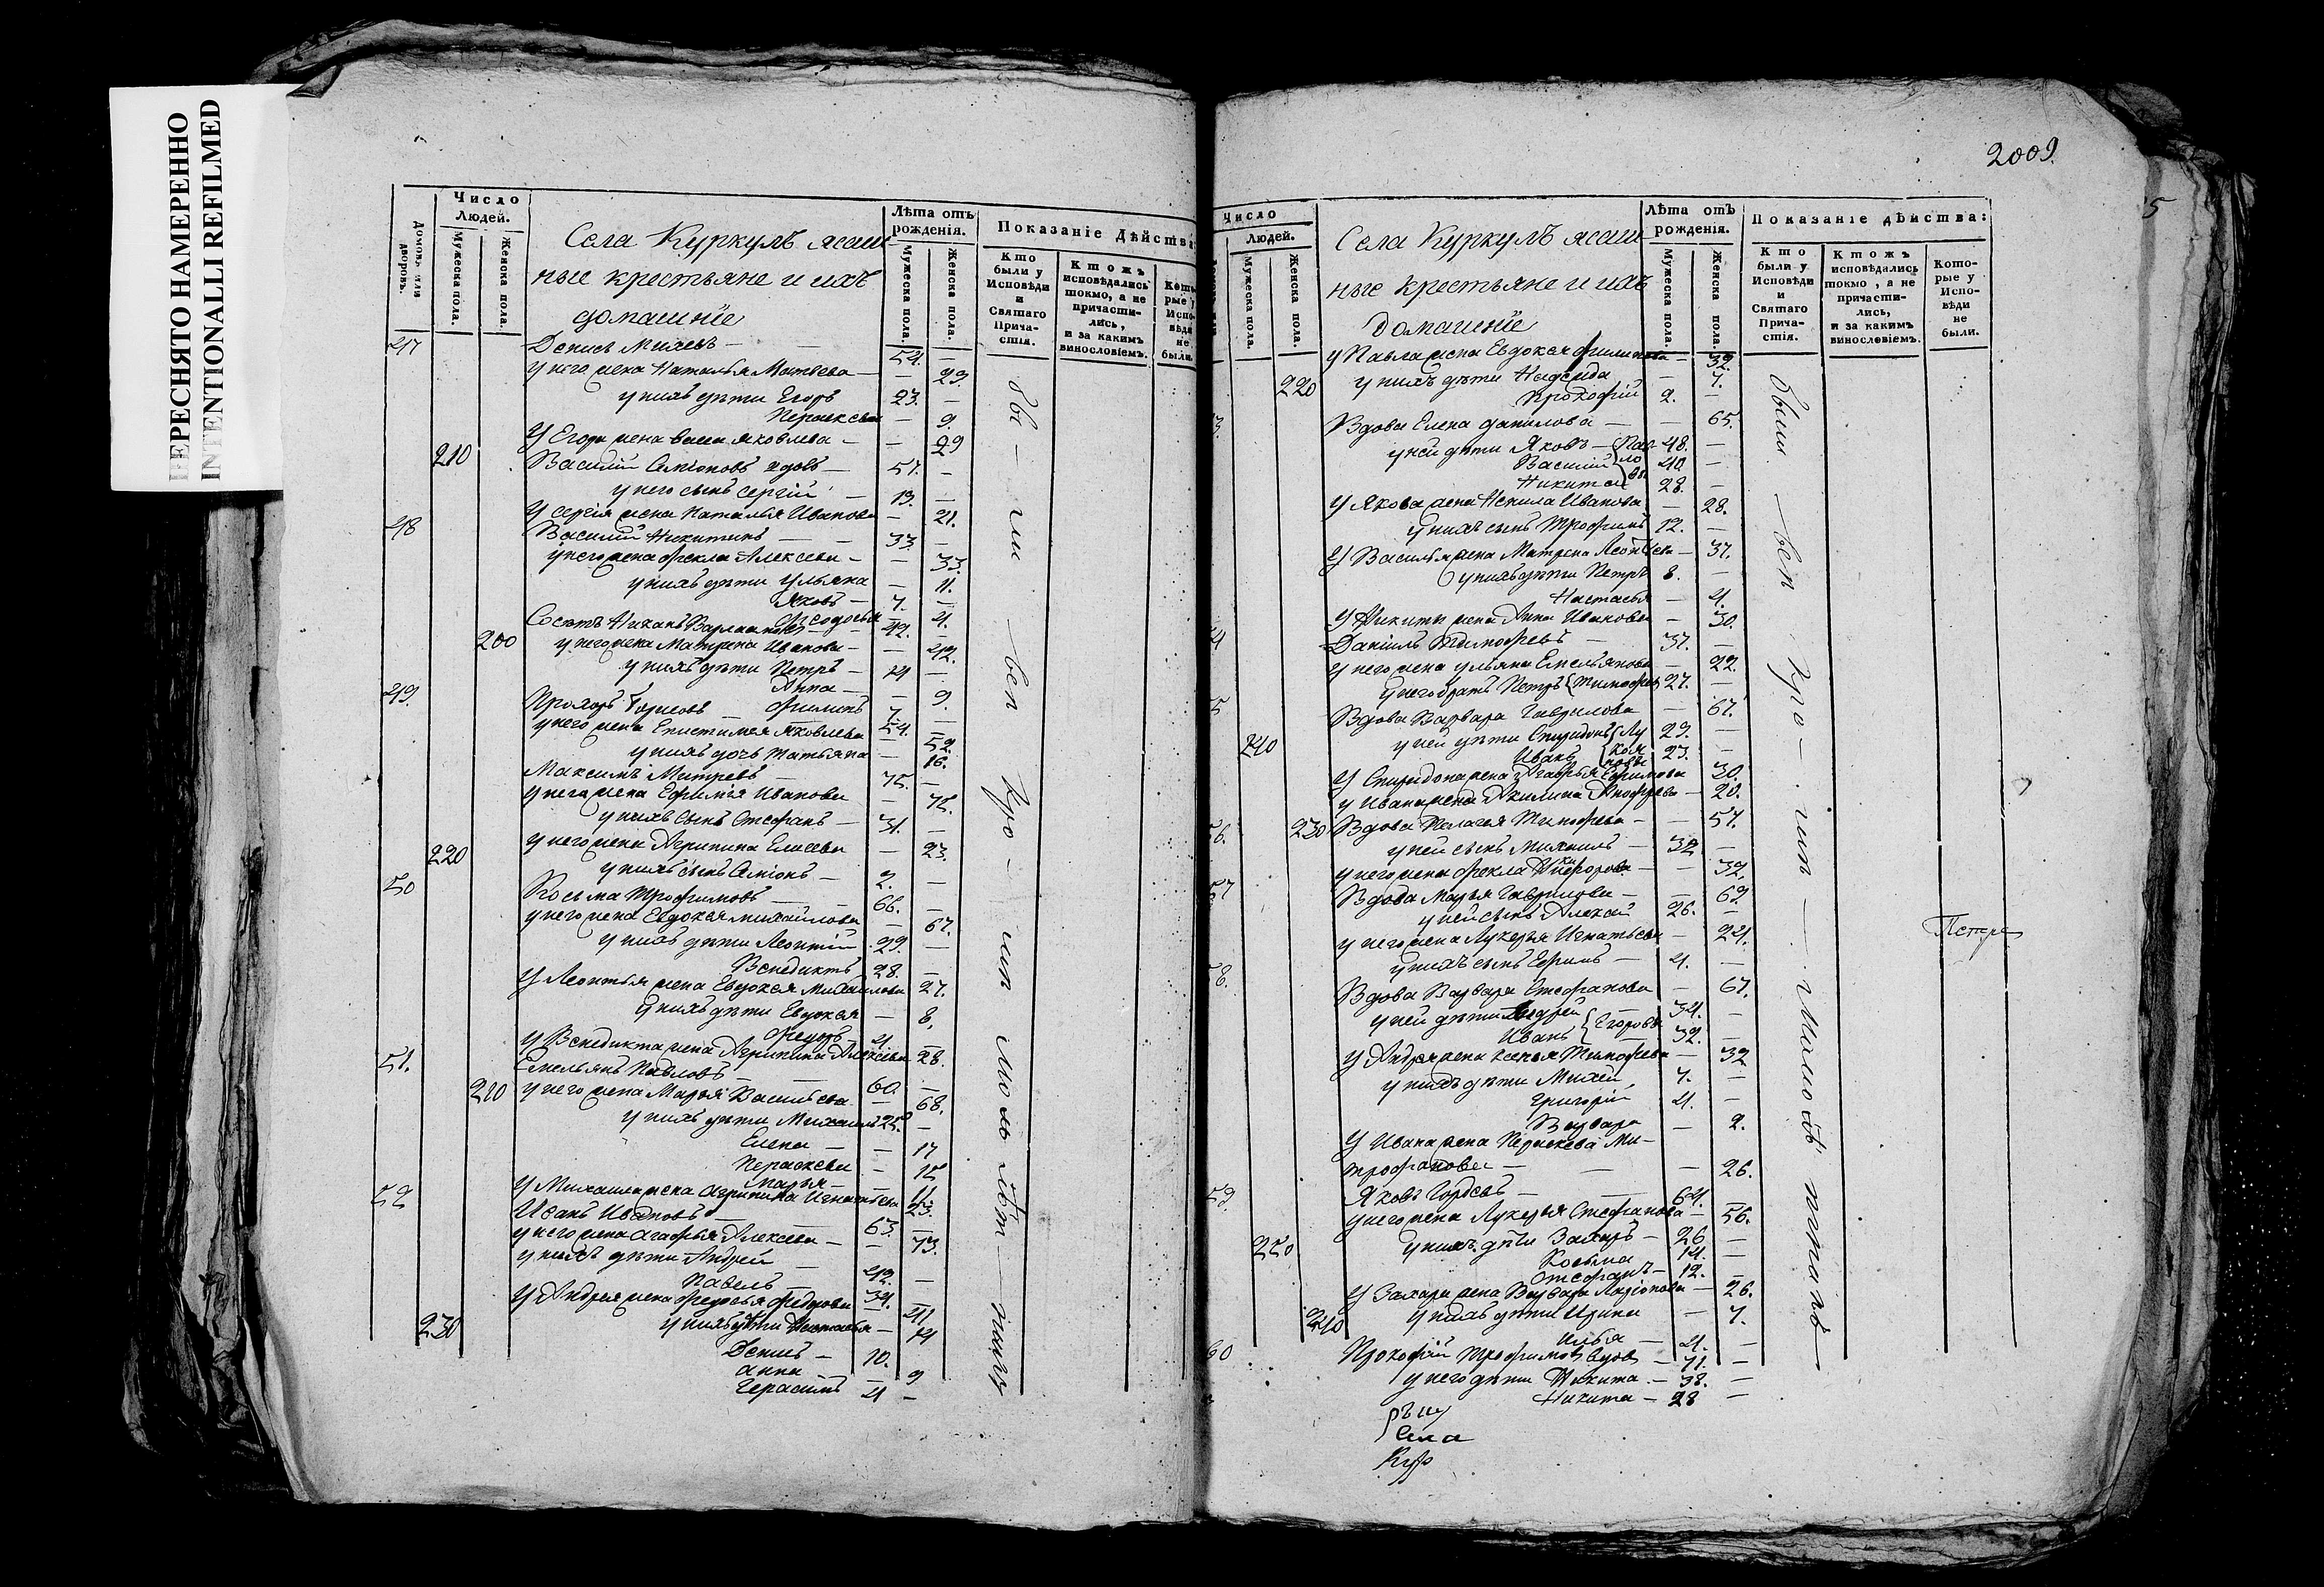 ПЕРЕСНЯТО НАМЕРЕННО
INTENTIONALLI REFILMED
Домовъ или дворовъ.
Число Людей.
Мужеска пола.
Женска пола.
Села Куркулъ ясаш-
ные крестьяне и ихъ
домашніе
Лѣта отъ рожденія.
Мужеска пола.
Женска пола.
Показаніе Дѣйства
Кто были у Исповѣди и Святаго Прича-стія.
Ктожъ исповѣдались токмо, а не причасти-лись, и за какимъ винословіемъ.
Кото рые у Испо-вѣди не были.
47 Денисъ 54. —
у него жена Наталья Матвеева — — 29
у нихъ дѣти Егоръ 23. —
— 9.
У Егора жена Яковлева — — 29
210 Василій Симіоновъ вдовъ — 57. —
у него сынъ Сергій — 19. —
У Сергія жена Наталья Иванова — 21.
48 Василій Никитинъ — — 33. —
у него жена Фекла Алексеева — — 33.
у нихъ дѣти Ульяна — 11.
Яковъ — 7. —
Федосья — 4.
42. —
200 у него жена Матрена Иванова — — 42.
у нихъ дѣти Петръ — 14 —
Анна — — 9.
Филипъ 7. —
49. Прохоръ Борисовъ — — 54. —
у него жена Епистимея Яковлева — 52.
у нихъ дочь Татьяна — 16.
Максимъ Митревъ — 75. —
у него жена Ефимія Иванова — 75.
у нихъ сынъ Стефанъ — 31. —
у него жена Агрипина Елисеева — 23.
220 у нихъ сынъ Симіонъ — 2. —
50 Косьма Трофимовъ — — 66. —
у него жена Евдокея Михайлова — 67.
у нихъ дѣти Леонтій 29. —
Венедиктъ 28. —
У Леонтья жена Евдокея Михайлова 27.
у нихъ дѣти Евдокея — 8.
Федоръ 4 —
У Венедикта жена Агрипина Алексіева 28.
51. Емельянъ Павловъ — — 60. —
210 у него жена Марья Васильева — 68.
у нихъ дѣти Михаилъ 25. —
Елена — — 17
Пераскева — 15
Марья — — 11.
У Михаила жена Агрипина Игнатьева 23.
52 Иванъ Ивановъ — — 63. —
у него жена Агафья Алексеева — — 73.
у нихъ дѣти Андрей — 42. —
Павелъ — 34. —
У Андрея жена Федосья Федорова — 41
230 у нихъ дѣти Настасья — 14
Денисъ — 10. —
Анна — 9
Герасимъ 4 —
бы — ли — вси
2009.
5
Число
Людей.
Мужеска пола.
Женска пола.
Села Куркулъ ясаш-
ные крестьяне и ихъ
домашніе
Лѣта отъ рожденія.
Мужеска пола.
Женска пола.
Показаніе дѣйства:
Кто были у Исповѣди и Святаго Прича-стія.
Ктожъ исповѣдались токмо, а не причасти-лись, и за какимъ винословіемъ.
Кото-рые у Испо-вѣди не были.
у Павла жена Евдокея Филипова — 32.
220 у нихъ дѣти Надежда — 7.
Прокофій 2. —
3. Вдова Елена Данилова — — 65.
у ней дѣти Яковъ — Пав 48. —
Василій ло 40. —
Никита вы 28. —
У Якова жена Ненила Иванова — 28.
у нихъ сынъ Трофимъ 12. —
У Василья жена Матрена Леонтьева — 37.
у нихъ дѣти Петръ 8. —
Настасья — 4.
У Никиты жена Анна Иванова — 30.
4 Даніилъ Тимофеевъ — 37. —
у него жена Ульяна Емельянова — 22.
у него братъ Петръ Тимофеевъ 27. —
5 Вдова Варвара Гаврилова — 67.
240 у ней дѣти Спиридонъ Лу 29. —
Иванъ кья новы 23. —
У Спиридона жена Агафья Ефимова 30.
у Ивана жена Акилина — 20.
56. 230 Вдова Пелагея Тимофеева — — 57.
у ней сынъ Михаилъ — 32 —
у него жена Фекла Никифорова — — 32.
57 Вдова Марья Гаврилова — — 69
у ней сынъ Алексій 26. —
у него жена Лукерья Игнатьева — 24.
у нихъ сынъ Ефимъ — 4. —
58. Вдова Варвара Стефанова — 67.
у ней дѣти Андрей 34. —
Иванъ Егоровы 32. —
У Андрея жена Ксенья Тимофеева — 32
у нихъ дѣти Михей 7. —
Григорій 4. —
Варвара — 2.
У Ивана жена Пераскева Ми-
трофанова — — — 26.
59. Яковъ Гордеевъ — 64. —
у него жена Лукерья Стефанова — 56.
250 у нихъ дѣти Захаръ — 26 —
Косьма 14. —
Стефанъ — 12. —
У Захара жена Варвара Ларіонова — 26.
240 у нихъ дѣти Ирина — 7.
Илья — 4. —
60 Прокофій Трофимовъ вдовъ — 71. —
у него дѣти Никита — 38. —
Никита — 28 —
были вси
села
Кур